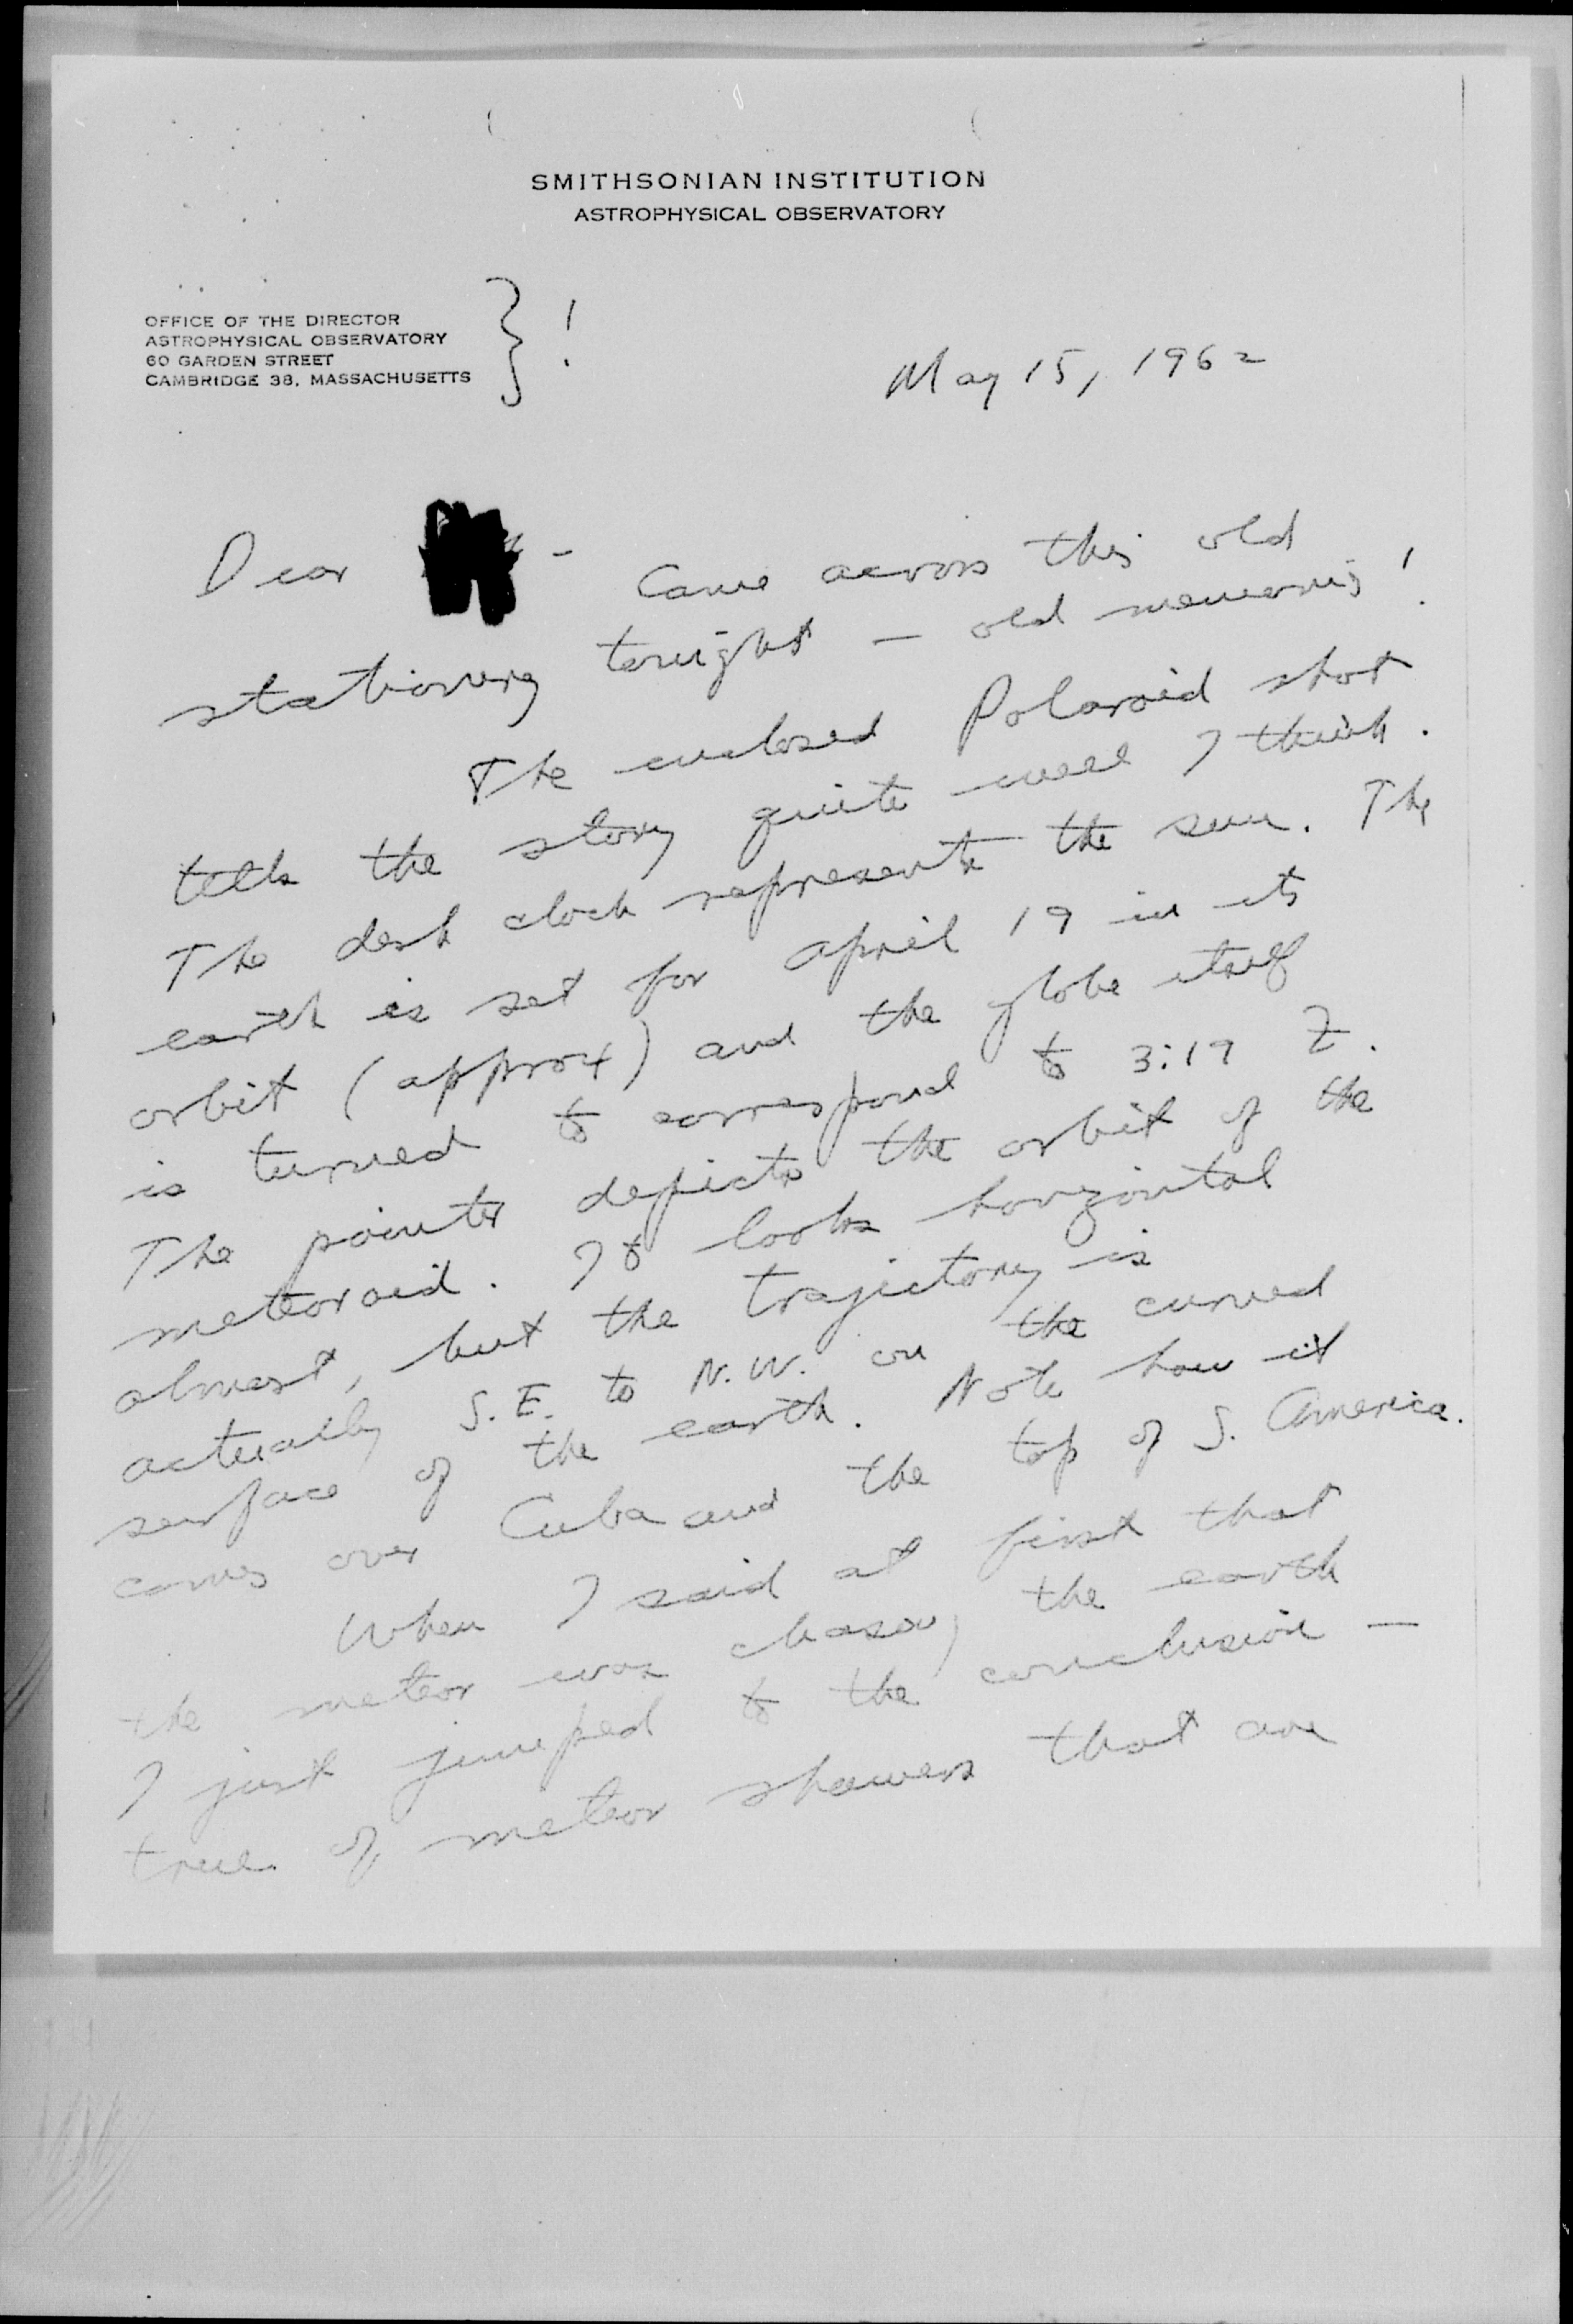 SMITHSONIAN INSTITUTION
ASTROPHYSICAL OBSERVATORY
OFFICE OF THE DIRECTOR
ASTROPHYSICAL OBSERVATORY
60 GARDEN STREET
CAMBRIDGE 38, MASSACHUSETTS
} !
May 15, 1962
Dear - Came across this old
stationery tonight - old memories!
The enclosed Polaroid shot
tells the story quite well I think.
The desk clock represents the sun. The
earth is set for April 19 in its
orbit (approx) and the globe itself
is turned to correspond to 3:19 Z.
The pointer depicts the orbit of the
meteoroid. It looks horizontal
almost, but the trajectory is
actually S.E. to N.W. on the curved
surface of the earth. Note how it
comes over Cuba and the top of S. America.
When I said at first that
the meteor was chasing the earth
I just jumped to the conclusion -
true of meteor showers that are